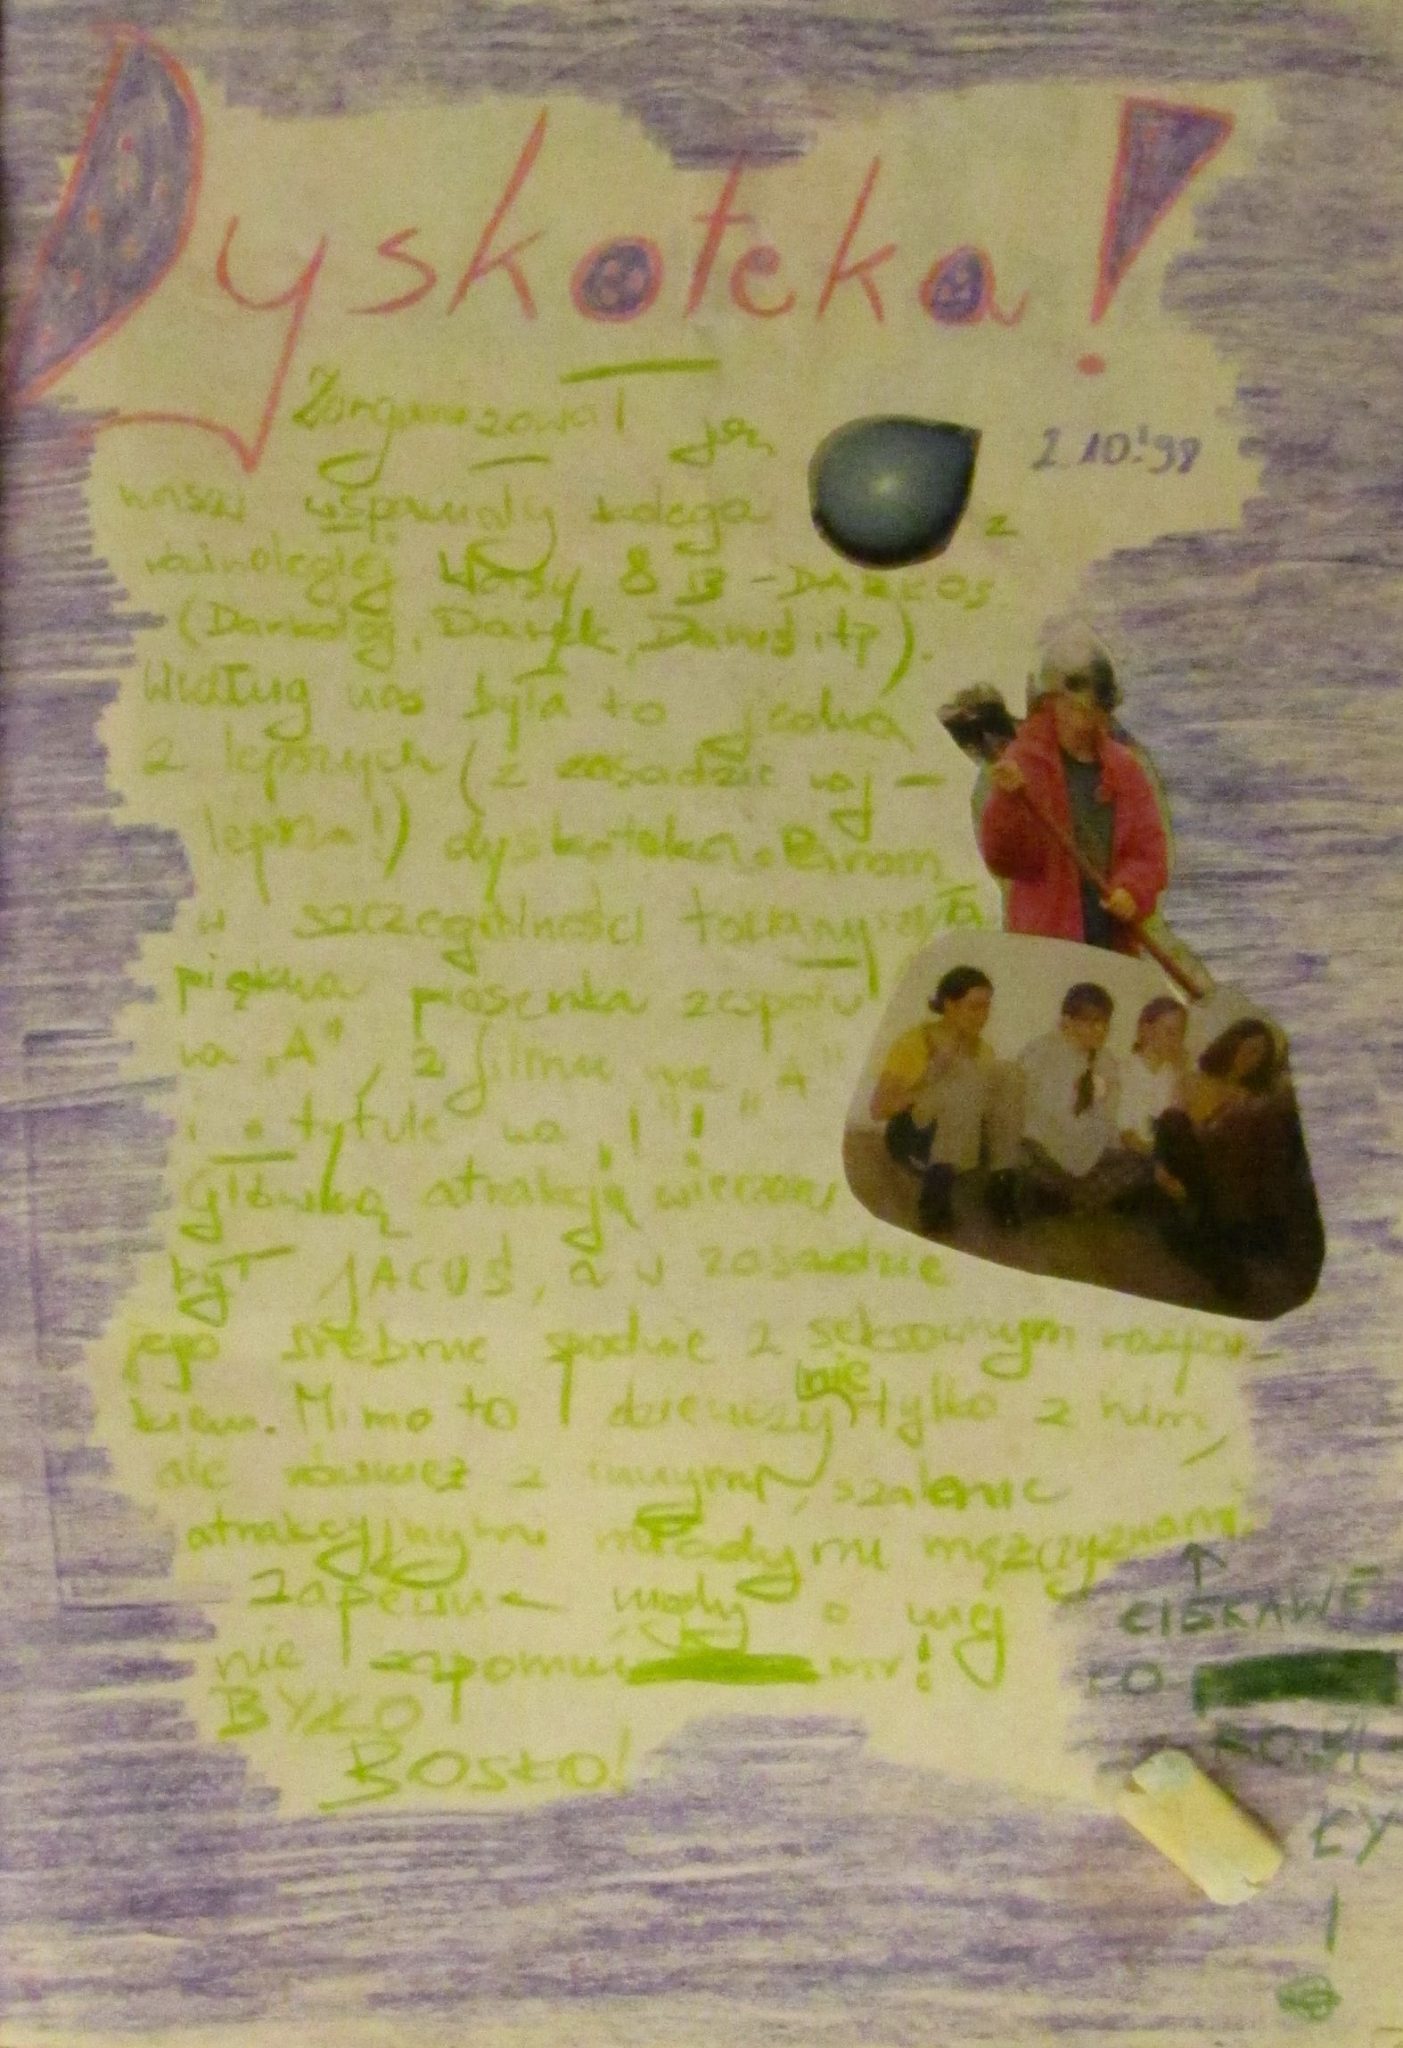 Dyskoteka!
Zorganizował ją
2.10.'98
nasz wspaniały kolega z
równoległej klasy 8 B - DARKOS
(Darek, Dawid, itp).
Według nas była to jedna
z lepszych (z zasadzie naj -
lepsza!) dyskoteka.
w szczególności towarzyszyła
piękna piosenka zespołu
na "A", z filmu na "A"
i o tytule na "I"!
Główną atrakcją wieczoru
był JACUŚ, a w zasadzie
jego srebrne spodnie z seksownym rozpor-
kiem. Mimo to dziewczyny nie tylko z nim,
ale również z innymi, szalenie
atrakcyjnymi młodymi mężczyznami.
Zapewne nigdy o niej
nie zapomni my!
BYŁO
BOSKO!
CIEKAWE